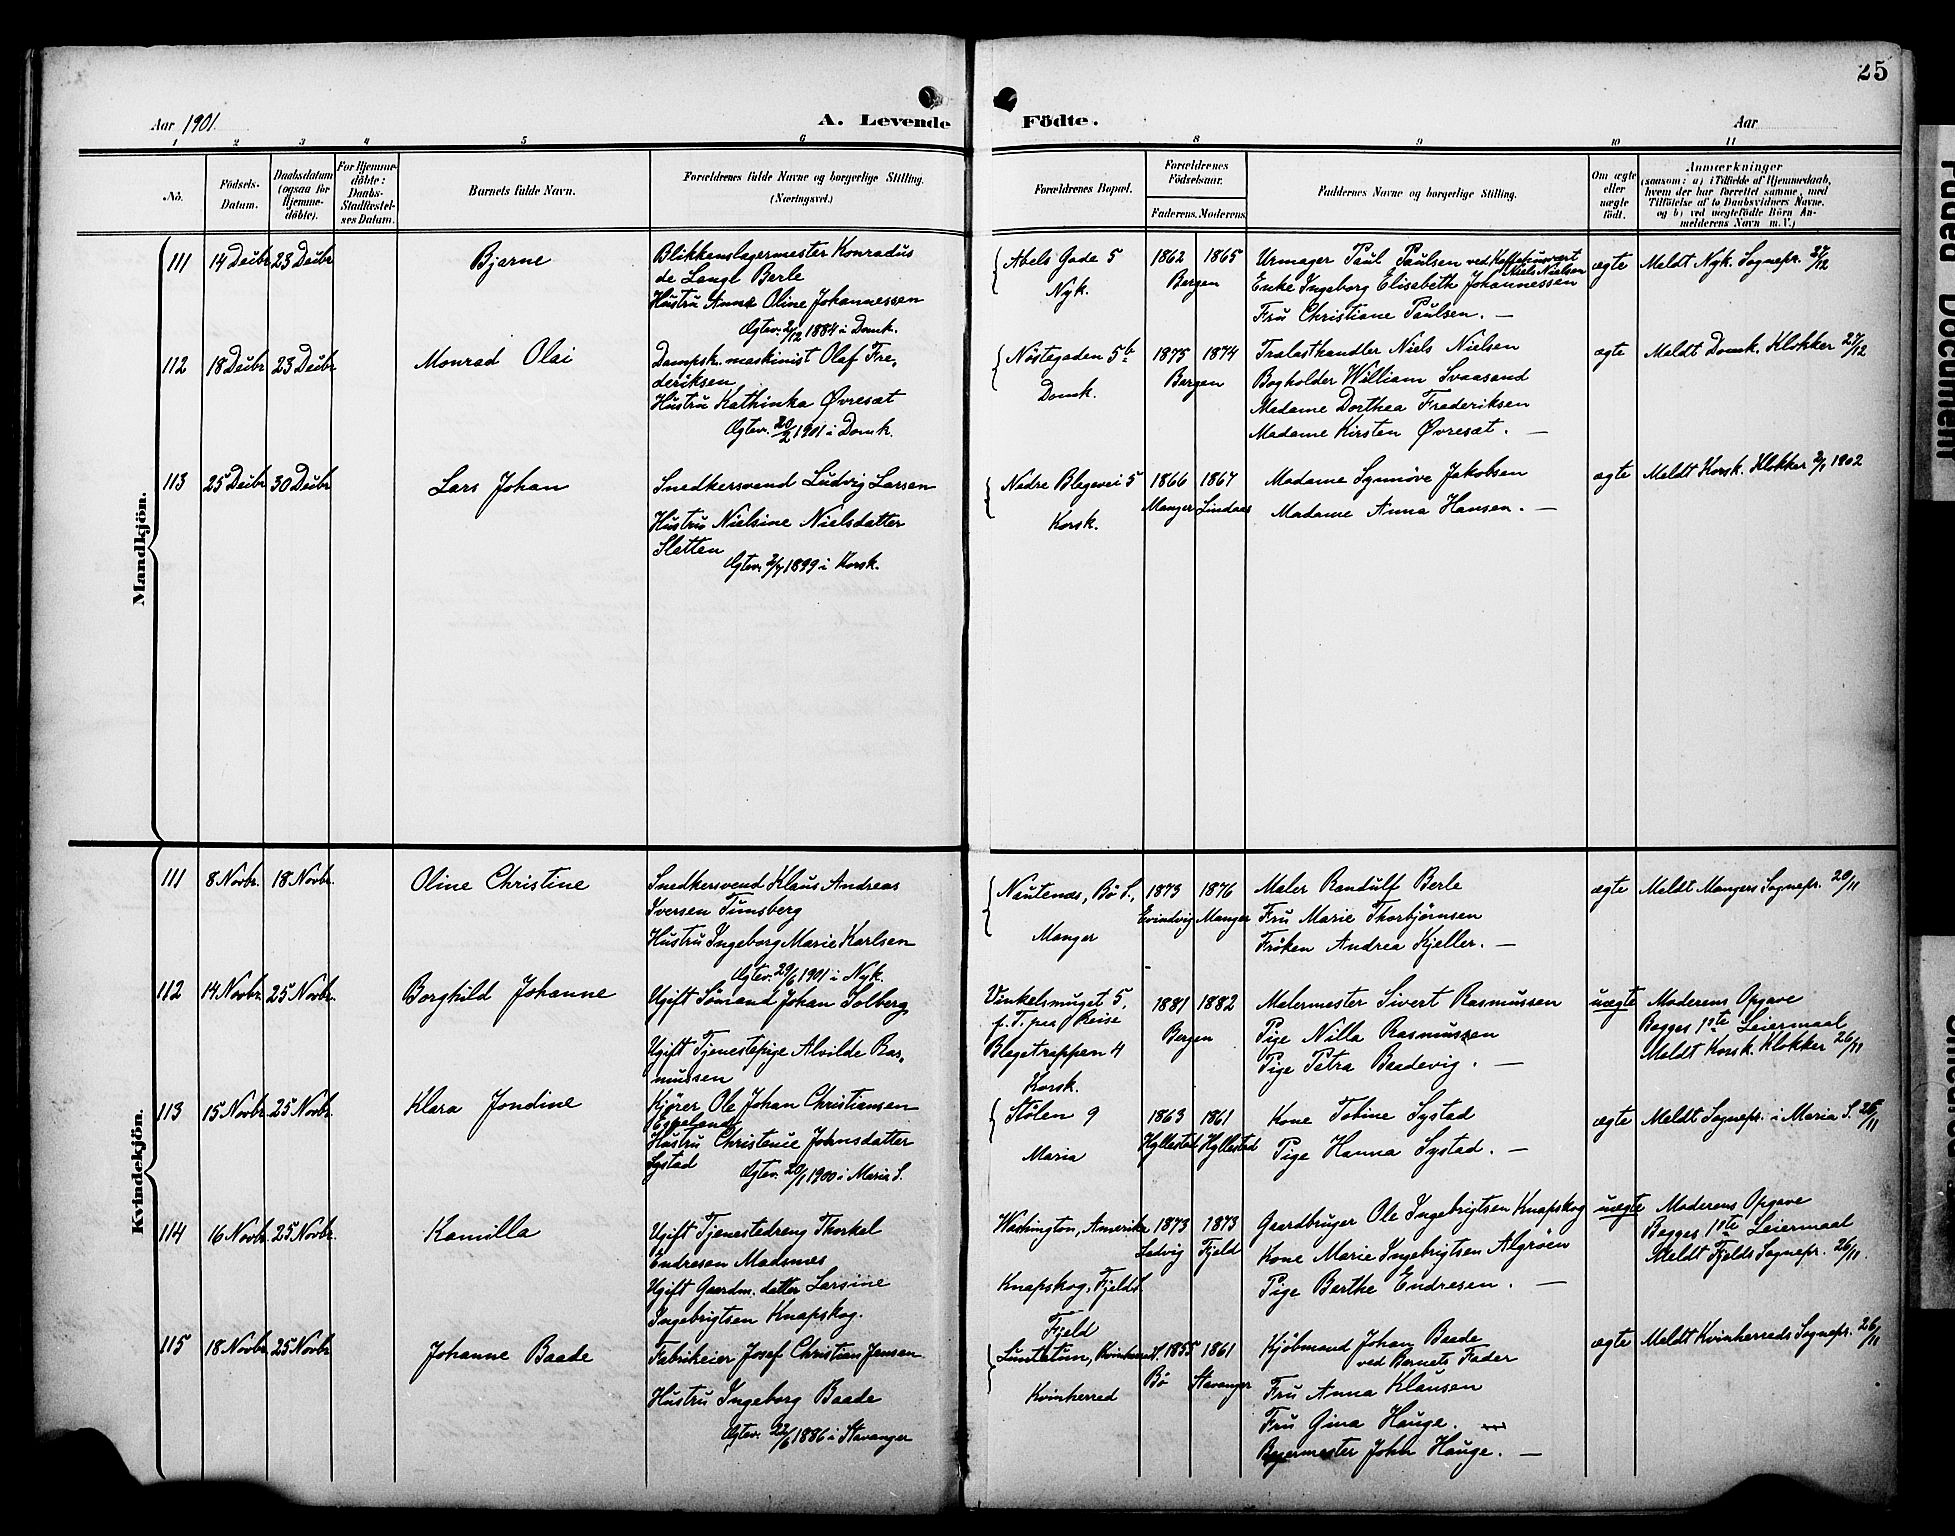 25
Aar 1901.
A. Levende Födte.
Aar
1 2 3 4 5 6 8 9 10 11
No.
Födsels-
Datum.
Daabsdatum
(ogsaa for
Hjemme-
döbte).
For Hjemme-
döbte:
Daabs-
Stadfæstel-
ses Datum.
Barnets fulde Navn.
Forældrenes fulde Navne og borgerlige Stilling.
(Næringsvei.)
Forældrenes Bopæl.
Forældrenes
Födselsaar.
Faderens. Moderens.
Faddernes Navne og borgerlige Stilling.
Om ægte
eller
uægte
födt.
Anmærkninger
(saasom: a) i Tilfælde af Hjemmedaab,
hvem der har forrettet samme, med
Tilföielse af to Daabsvidners Navne.
og b) ved uægtefödte Börn An-
melderens Navn m.V.)
Mandkjön.
111 14 Decbr 23 Decbr
Bjarne
Blikkenslagermester Konradus
de Langl Berle
Hustru Anna Oline Johannessen
Ogtev. 2/12 1884 i Domk.
Abels Gade 5
Nyk.
1862 1865
Bergen
Urmager Paul Paulsen ved Kaffebrænder
Niels Nielsen
Enke Ingeborg Elisabeth Johannessen
Fru Christiane Paulsen. —
ægte
Meldt Nyk. Sognepr. 27/12
112 18 Decbr 23 Decbr
Monrad Olai
Dampsk. maskinist Olaf Fre-
deriksen
Hustru Kathinka Øvresæt
Ogtev. 20/2 1901 i Domk.
Nöstegaden 5b
Domk.
1875 1874
Bergen
Trælasthandler Niels Nielsen
Bogholder William Svaasand
Madame Dorthea Frederiksen
Madame Kirsten Øvresæt. —
ægte
Meldt Domk. Klokker 27/12
113 25 Decbr 30 Decbr
Lars Johan
Snedkersvend Ludvig Larsen
Hustru Nielsine Nielsdatter
Sletten
Ogtev. 2/7 1899 i Korsk.
Nedre Blegevei 5
Korsk.
1866 1867
Manger Lindaas
Madame Synnöve Jakobsen
Madame Anna Hansen. —
ægte
Meldt Korsk. Klokker 2/1 1902
Kvindekjön.
111 8 Novbr. 18 Novbr.
Oline Christine
Snedkersvend Klaus Andreas
Iversen Tunsberg
Hustru Ingeborg Marie Karlsen
Ogtev. 29/6 1901 i Nyk.
Nautenæs, Bö S.,
Manger
1873 1876
Evindvig Manger
Maler Randulf Berle
Fru Marie Thorbjörnsen
Fröken Andrea Kjeller. —
ægte
Meldt Mangers Sognepr. 20/11
112 14 Novbr. 25 Novbr.
Borghild Johanne
Ugift Sömand Johan Solberg
Ugift Tjenestepige Alvilde Ras-
mussen
Vinkelsmuget 5,
f. T. paa Reise
Blegetrappen 4
Korsk.
1881 1882
Bergen
Malermester Sivert Rasmussen
Pige Nilla Rasmussen
Pige Petra Bredevig. —
uægte
Moderens Opgave
Begges 1ste Leiermaal
Meldt Korsk. Klokker 26/11
113 15 Novbr. 25 Novbr.
Klara Jondine
Kjörer Ole Johan Christiansen
Espeland
Hustru Christence Johnsdatter
Systad
Ogtev. 20/1 1900 i Maria S.
Stölen 9
Maria
1863 1861
Hyllestad Hyllestad
Kone Tobine Systad
Pige Hanna Systad. —
ægte
Meldt Sognepr. i Maria S. 26/11
114 16 Novbr. 25 Novbr.
Kamilla
Ugift Tjenestedreng Thorkel
Endresen Madsnes
Ugift Gaardm. datter Larsine
Ingebrigtsen Knapskog.
Washington, Amerika
Knapskog, Fjelds.
Fjeld
1873 1873
Ladvig Fjeld
Gaardbruger Ole Ingebrigtsen Knapskog
Kone Marie Ingebrigtsen Algröen
Pige Berthe Endresen. —
uægte
Moderens Opgave
Begges 1ste Leiermaal
Meldt Fjelds Sognepr. 26/11.
115 18 Novbr. 25 Novbr.
Johanne Baade
Fabrikeier Josef Christian Jensen
Hustru Ingeborg Baade
Ogtev. 22/6 1886 i Stavanger
Kvinherred
1855 1861
Bö Stavanger
Kjöbmand Johan Baade
ved Barnets Fader
Fru Anna Klausen
Fru Gina Hauge.
Bagermester John Hauge. —
ægte
Meldt Kvinherreds Sognepr. 26/11
Faded Document